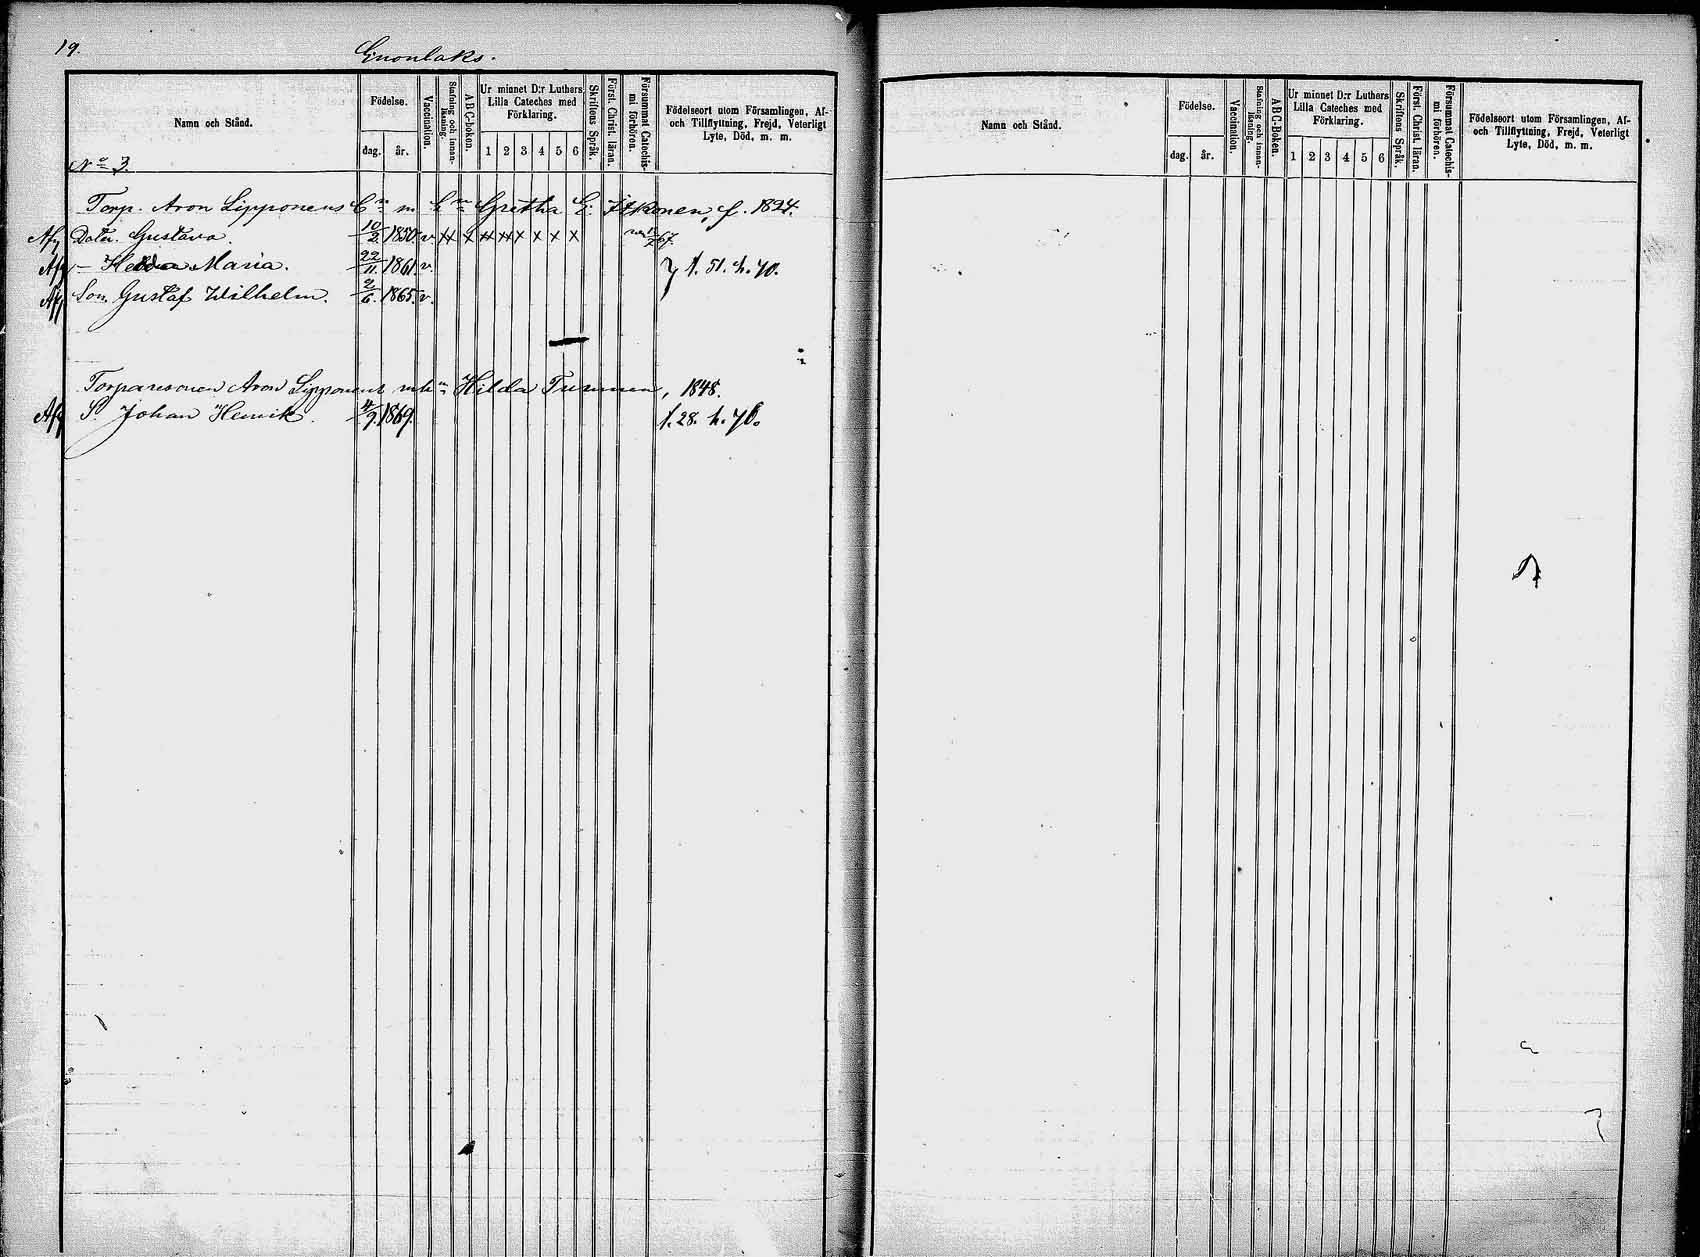 19.
Enonlaks.
Namn och Stånd.
Födelse.
dag.
år.
Vaccination.
Stafning och innan-läsning.
A B C-boken.
Ur minnet D:r Luthers
Lilla Cateches med
Förklaring.
1 2 3 4 5 6
Skriftens Språk.
Först. Christ. läran.
Försummat Catechis-
mi förhören.
Födelseort utom Församlingen, Af-
och Tillflyttning, Frejd, Veterligt
Lyte, Död, m. m.
No 3.
Torp. Aron Lipponens Cn m hu Gretha E. Itkonen, f. 1824.
Afg Dotr. Gustava. 10/2. 1850. v. X X X X X X X X
Afg – Hedda Maria. 22/11. 1861 v. } f. 51. h. 70.
Afg Son. Gustaf Wilhelm. 2/6. 1865. v.
Torparesonen Aron Lipponens m h Hilda, 1848.
Afg S. Johan Henrik. 4/9. 1869. f. 28. h. 70.
Namn och Stånd.
Födelse.
dag.
år.
Vaccination.
Stafning och innan-läsning.
A B C-Boken.
Ur minnet D:r Luthers
Lilla Cateches med
Förklaring.
1 2 3 4 5 6
Skriftens Språk.
Först. Christ. läran.
Försummat Catechis-
mi förhören.
Födelseort utom Församlingen, Af-
och Tillflyttning, Frejd, Veterligt
Lyte, Död, m. m.